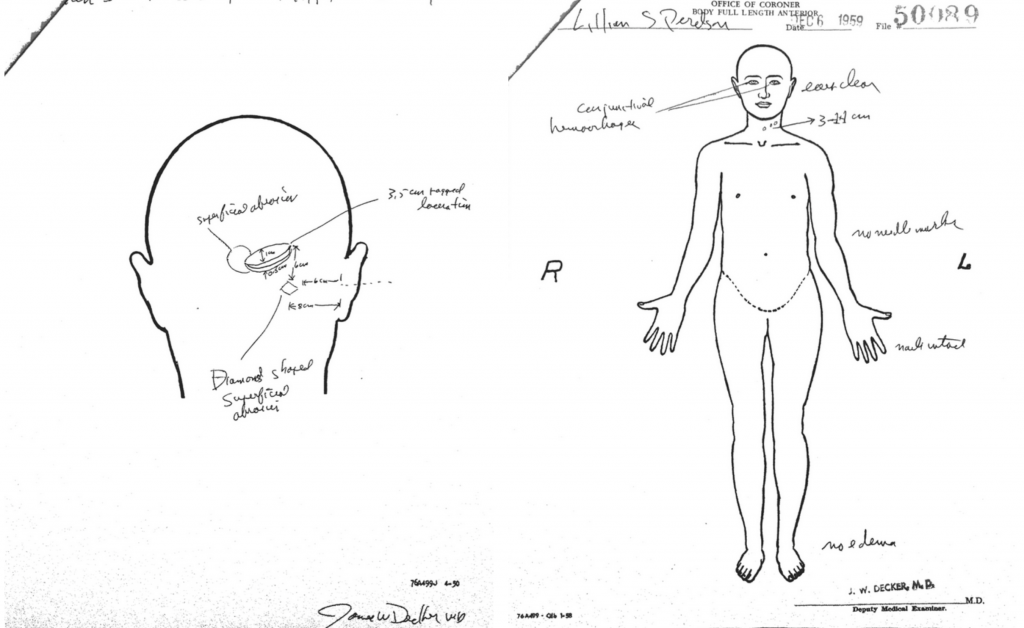 superficial abrasion
3.5cm ragged
laceration
1cm
0.3cm
6cm
6cm
8cm
Diamond shaped
superficial
abrasion
76A499J 4-50
James W Decker MD
OFFICE OF CORONER
BODY FULL LENGTH ANTERIOR
Lillian S Perelson
Date DEC 6 1959
File # 50989
conjunctival
hemorrhages
ears clear
3-14 cm
no needle marks
R
L
nails intact
no edema
J. W. DECKER, M.D.
M.D.
Deputy Medical Examiner.